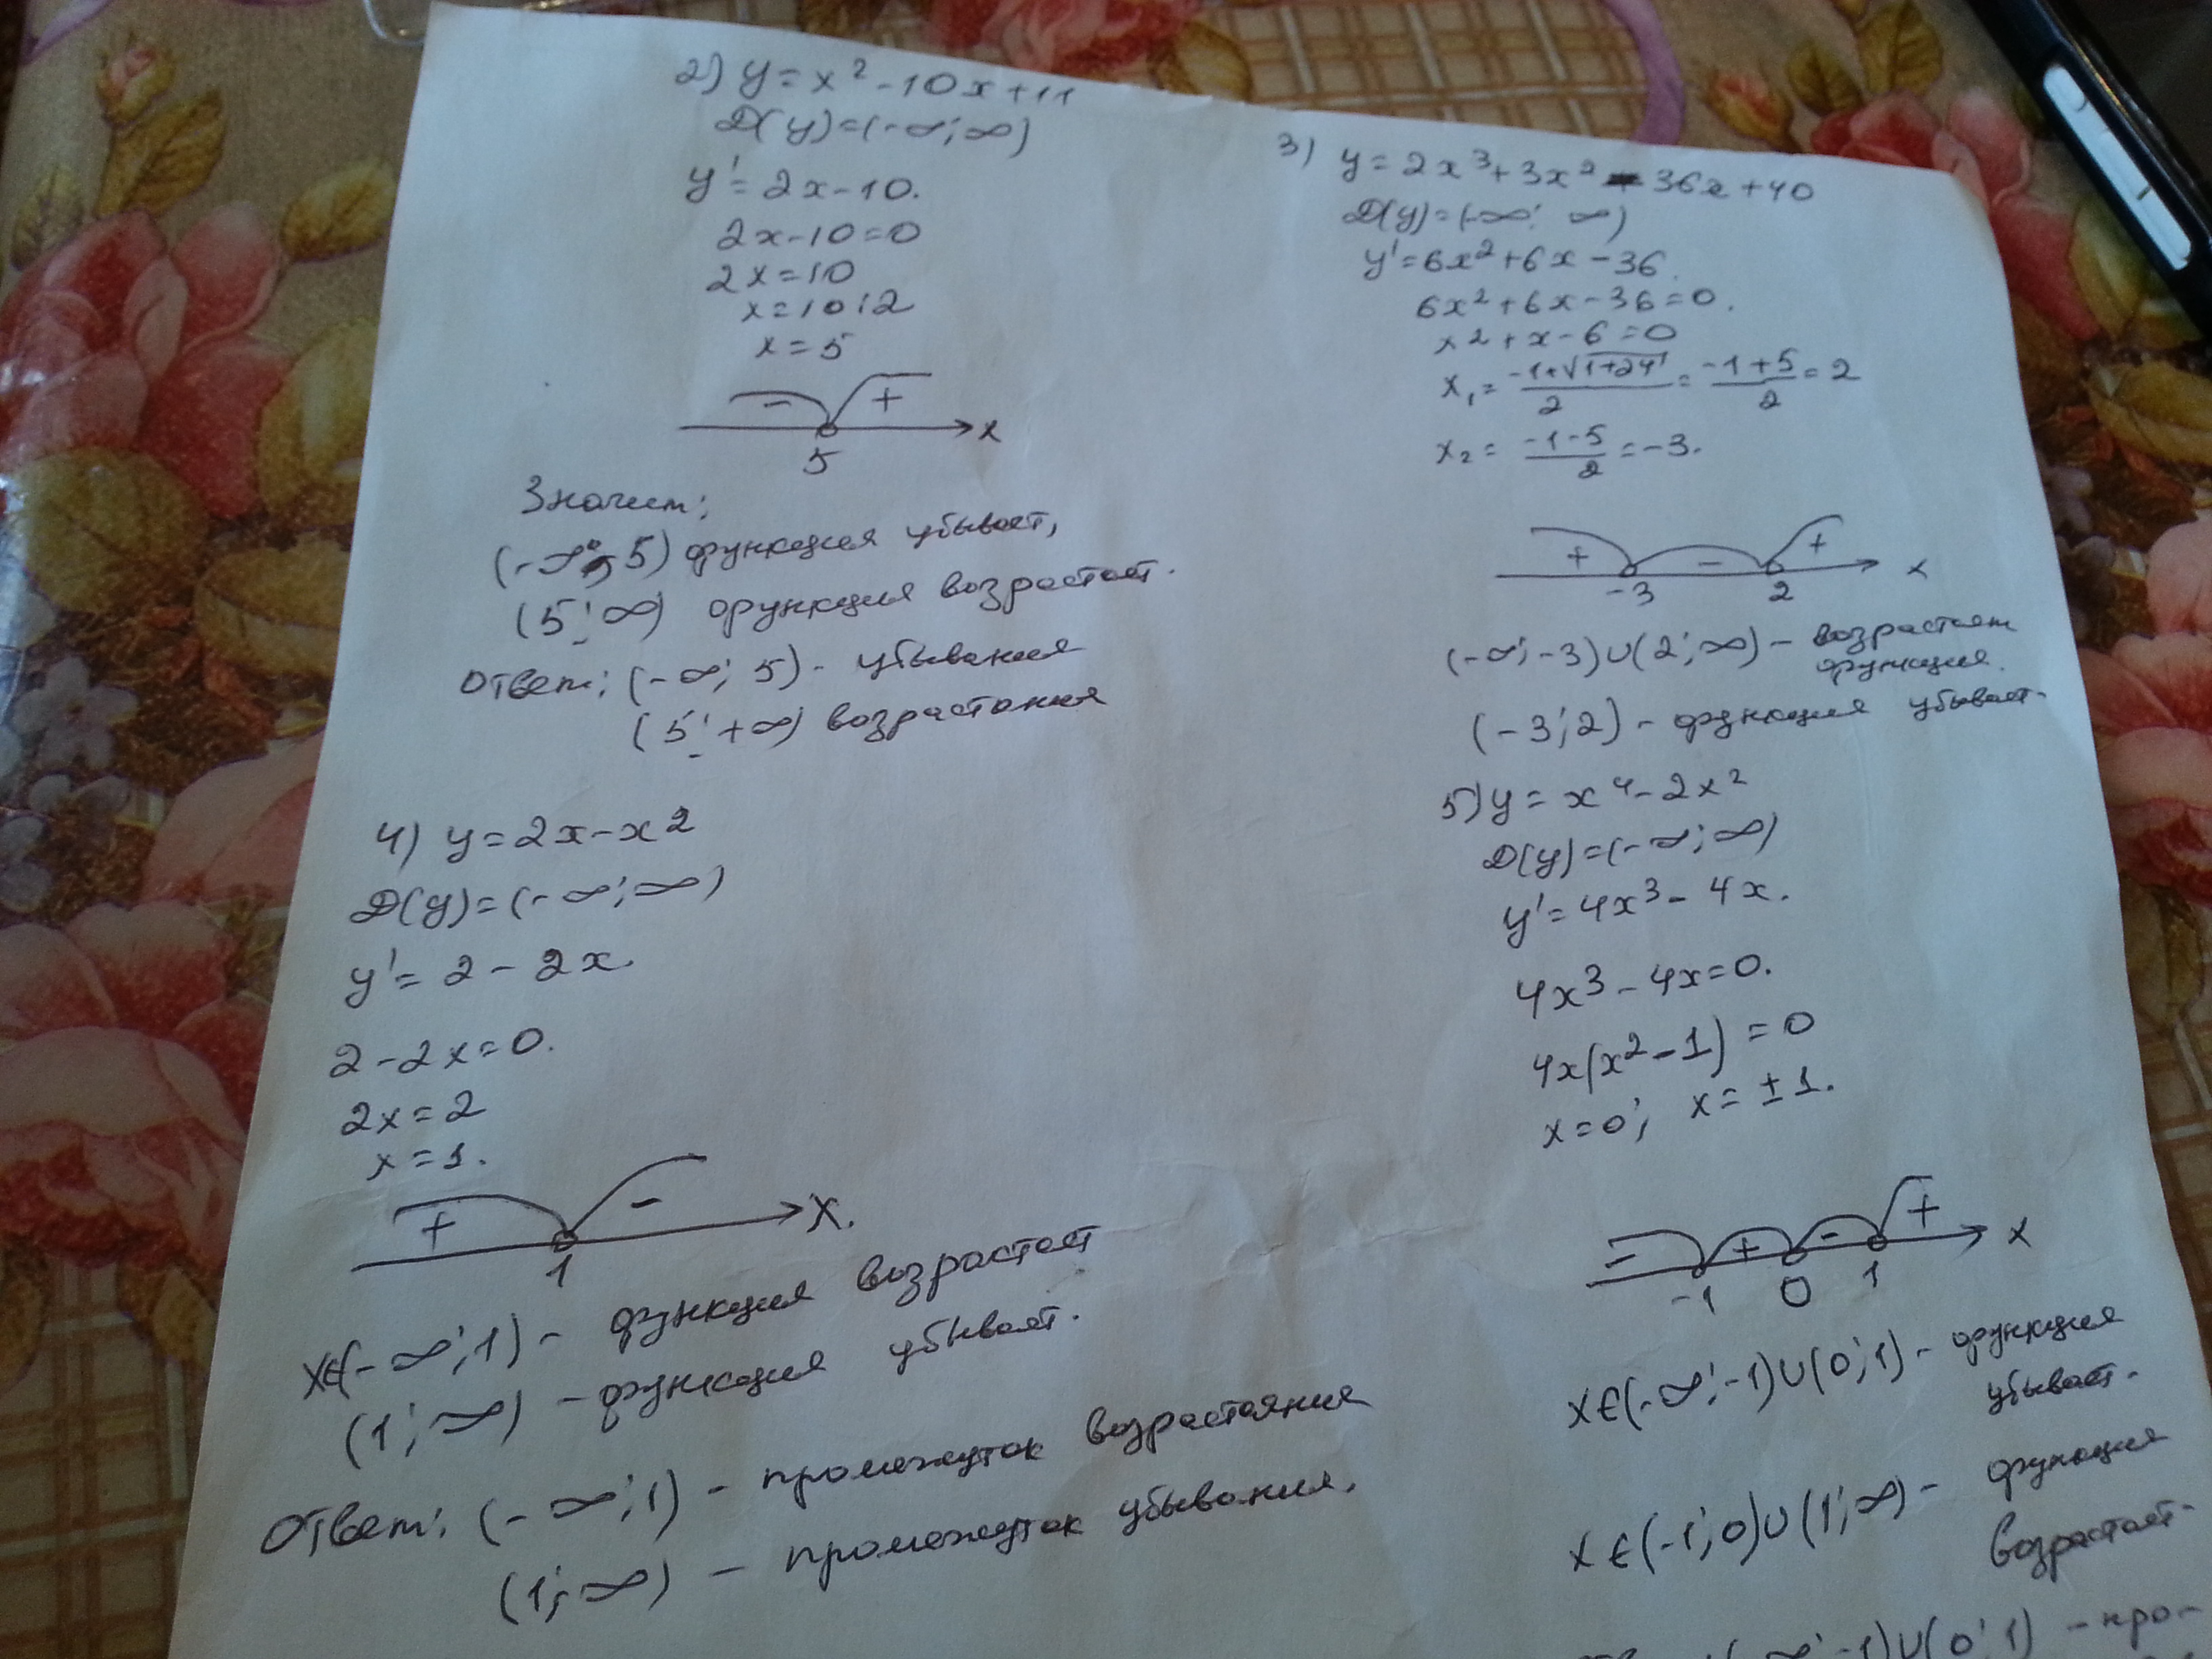 2) y = x² - 10x + 11
D(y) = (-∞; ∞)
y' = 2x - 10.
2x - 10 = 0
2x = 10
x = 10:2
x = 5
- + x
5
Значит:
(-∞; 5) функция убывает,
(5; ∞) функция возрастает.
Ответ: (-∞; 5) - убывания
(5; +∞) возрастания
3) y = 2x³ + 3x² - 36x + 40
D(y) = (-∞; ∞)
y' = 6x² + 6x - 36.
6x² + 6x - 36 = 0.
x² + x - 6 = 0
x₁ = (-1+√(1+24))/2 = (-1+5)/2 = 2
x₂ = (-1-5)/2 = -3.
+ - + x
-3 2
(-∞; -3) ∪ (2; ∞) - возрастает
функция.
(-3; 2) - функция убывает.
4) y = 2x - x²
D(y) = (-∞; ∞)
y' = 2 - 2x.
2 - 2x = 0.
2x = 2
x = 1.
+ - x.
1
x∈(-∞; 1) - функция возрастает
(1; ∞) - функция убывает.
Ответ: (-∞; 1) - промежуток возрастания
(1; ∞) - промежуток убывания.
5) y = x⁴ - 2x²
D(y) = (-∞; ∞)
y' = 4x³ - 4x.
4x³ - 4x = 0.
4x(x² - 1) = 0
x = 0; x = ±1.
- + - + x
-1 0 1
x∈(-∞; -1) ∪ (0; 1) - функция
убывает.
x∈(-1; 0) ∪ (1; ∞) - функция
возрастает.
(-∞; -1) ∪ (0; 1) - про-